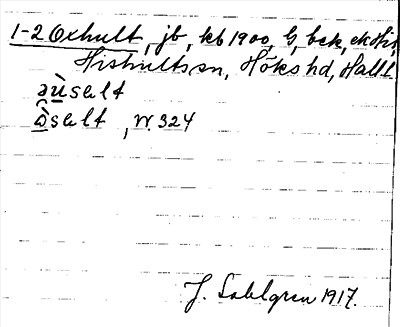 1-2 Oxhult, jb, kb 1900, G, bck, ek His,
Hishults sn, Höks hd, Hall l.
əùsəlt
òsəlt, W. 324
J. Sahlgren 1917.